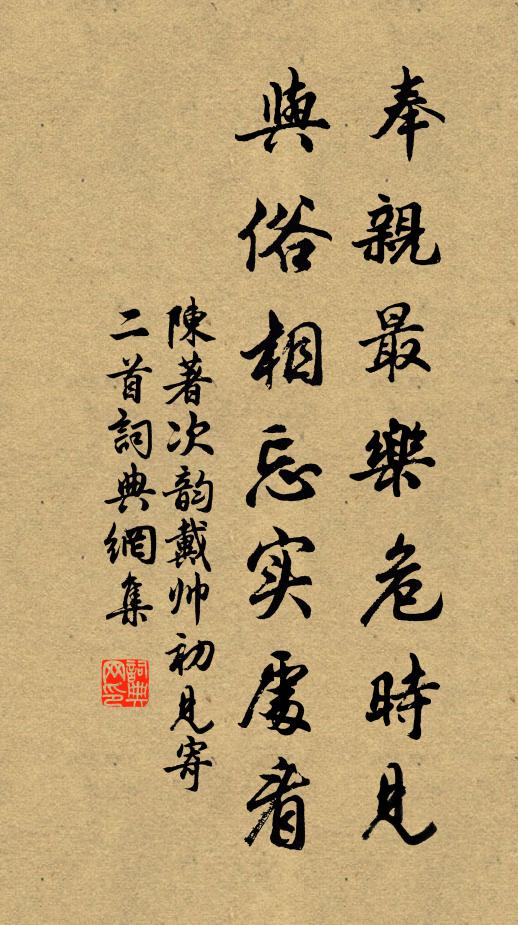 奉親最樂危時見
與俗相忘实處看
陳著次韵戴帅初见寄
二首詞典網集
詞典网印